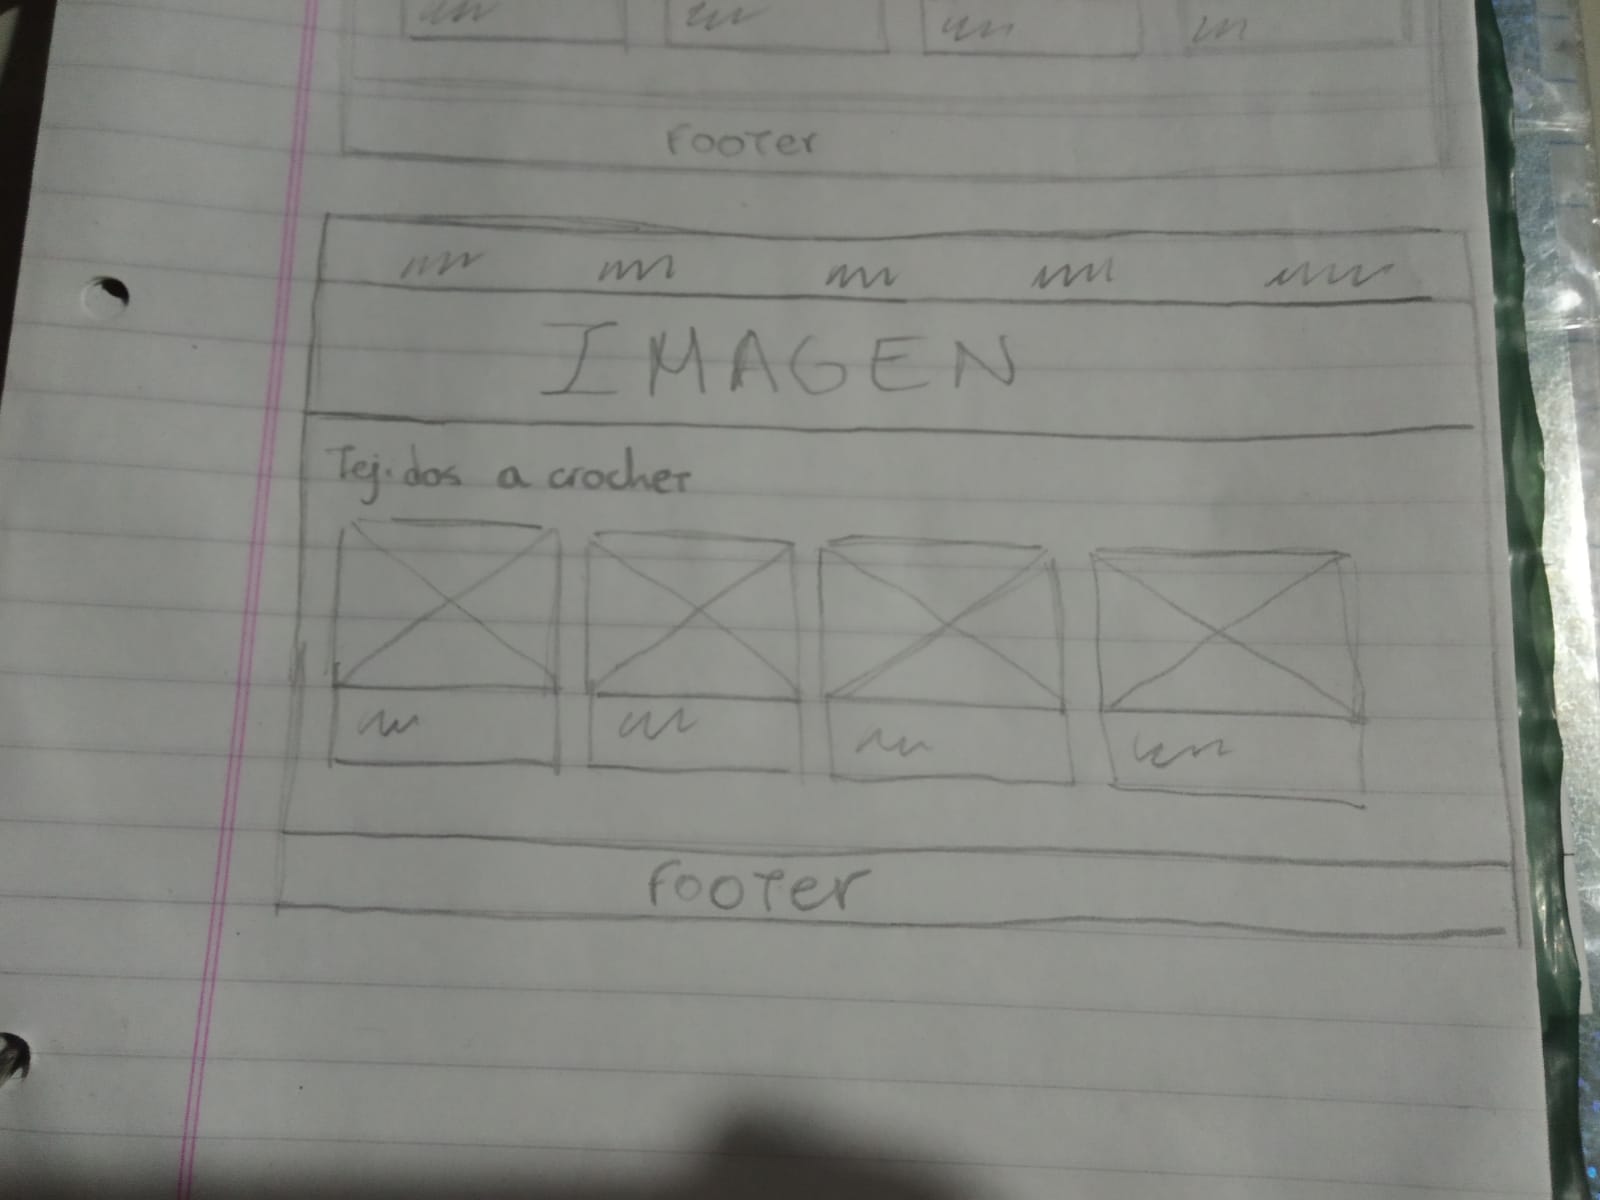 Footer
IMAGEN
Tejidos a crochet
Footer